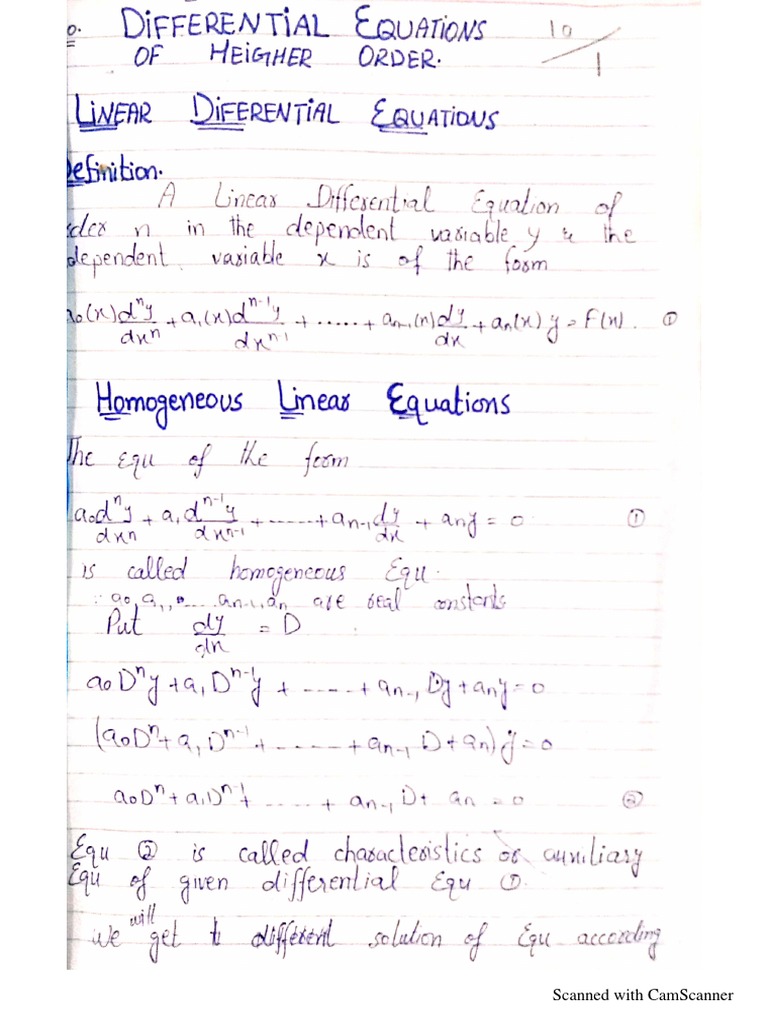 o. DIFFERENTIAL EQUATIONS 10/1
OF HEIGHER ORDER.
LINEAR DIFERENTIAL EQUATIONS
efinition.
A Linear Differential Equation of
rder n in the dependent variable y & the
dependent variable x is of the form
a₀(x)dⁿy/dxⁿ + a₁(x)dⁿ⁻¹y/dxⁿ⁻¹ + ...... + aₙ₋₁(x)dy/dx + aₙ(x)y = F(x). ①
Homogeneous Linear Equations
The equ of the form
a₀dⁿy/dxⁿ + a₁dⁿ⁻¹y/dxⁿ⁻¹ + ------ + aₙ₋₁dy/dx + aₙy = 0 ①
is called homogeneous Equ.
∵ a₀,a₁,,..... aₙ₋₁,aₙ are real constants
Put dy/dx = D
a₀Dⁿy + a₁Dⁿ⁻¹y + ----- + aₙ₋₁Dy + aₙy = 0
(a₀Dⁿ + a₁Dⁿ⁻¹ + ------- + aₙ₋₁D + aₙ)y = 0
a₀Dⁿ + a₁Dⁿ⁻¹ + ..... + aₙ₋₁D + aₙ = 0 ②
Equ ② is called characteristics or auxiliary
Equ of given differential Equ ①.
we will get different solution of Equ according
Scanned with CamScanner